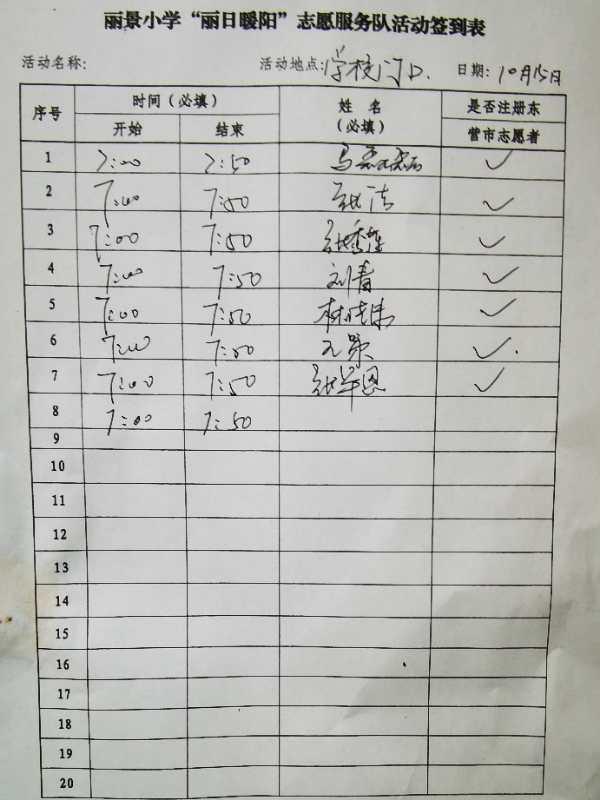 丽景小学“丽日暖阳”志愿服务队活动签到表
活动名称: 活动地点:学校门口. 日期: 10月15日
序号 时间（必填） 姓名（必填） 是否注册东营市志愿者
开始 结束
1 7:00 7:50 ✓
2 7:00 7:50 ✓
3 7:00 7:50 ✓
4 7:00 7:50 刘青 ✓
5 7:00 7:50 ✓
6 7:00 7:50 ✓
7 7:00 7:50 ✓
8 7:00 7:50
9
10
11
12
13
14
15
16
17
18
19
20